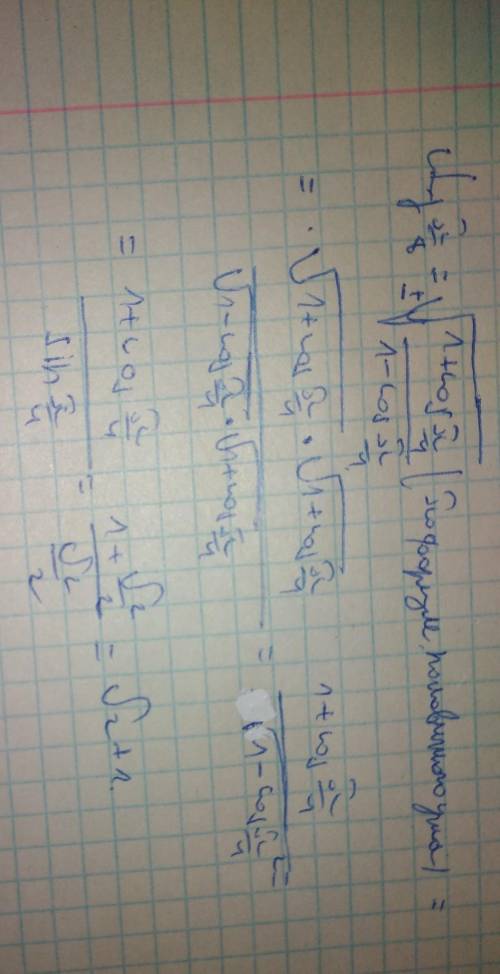 ctg π/8 = ±√((1+cos π/4)/(1-cos π/4)) (по формуле половинного угла) =
= √(1+cos π/4) · √(1+cos π/4) / √(1-cos π/4) · √(1+cos π/4) = 1+cos π/4 / √(1-cos² π/4) =
= 1+cos π/4 / sin π/4 = 1+ √2/2 / √2/2 = √2+1.